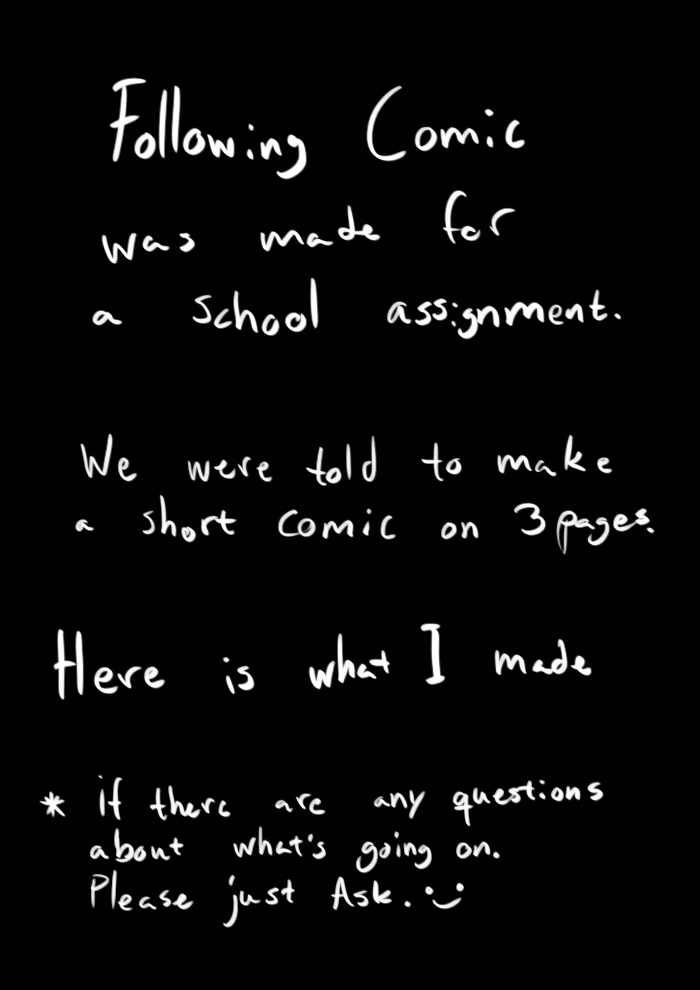 Following Comic
was made for
a school assignment.
We were told to make
a short comic on 3 pages.
Here is what I made
* if there are any questions
about what's going on.
Please just Ask. :)